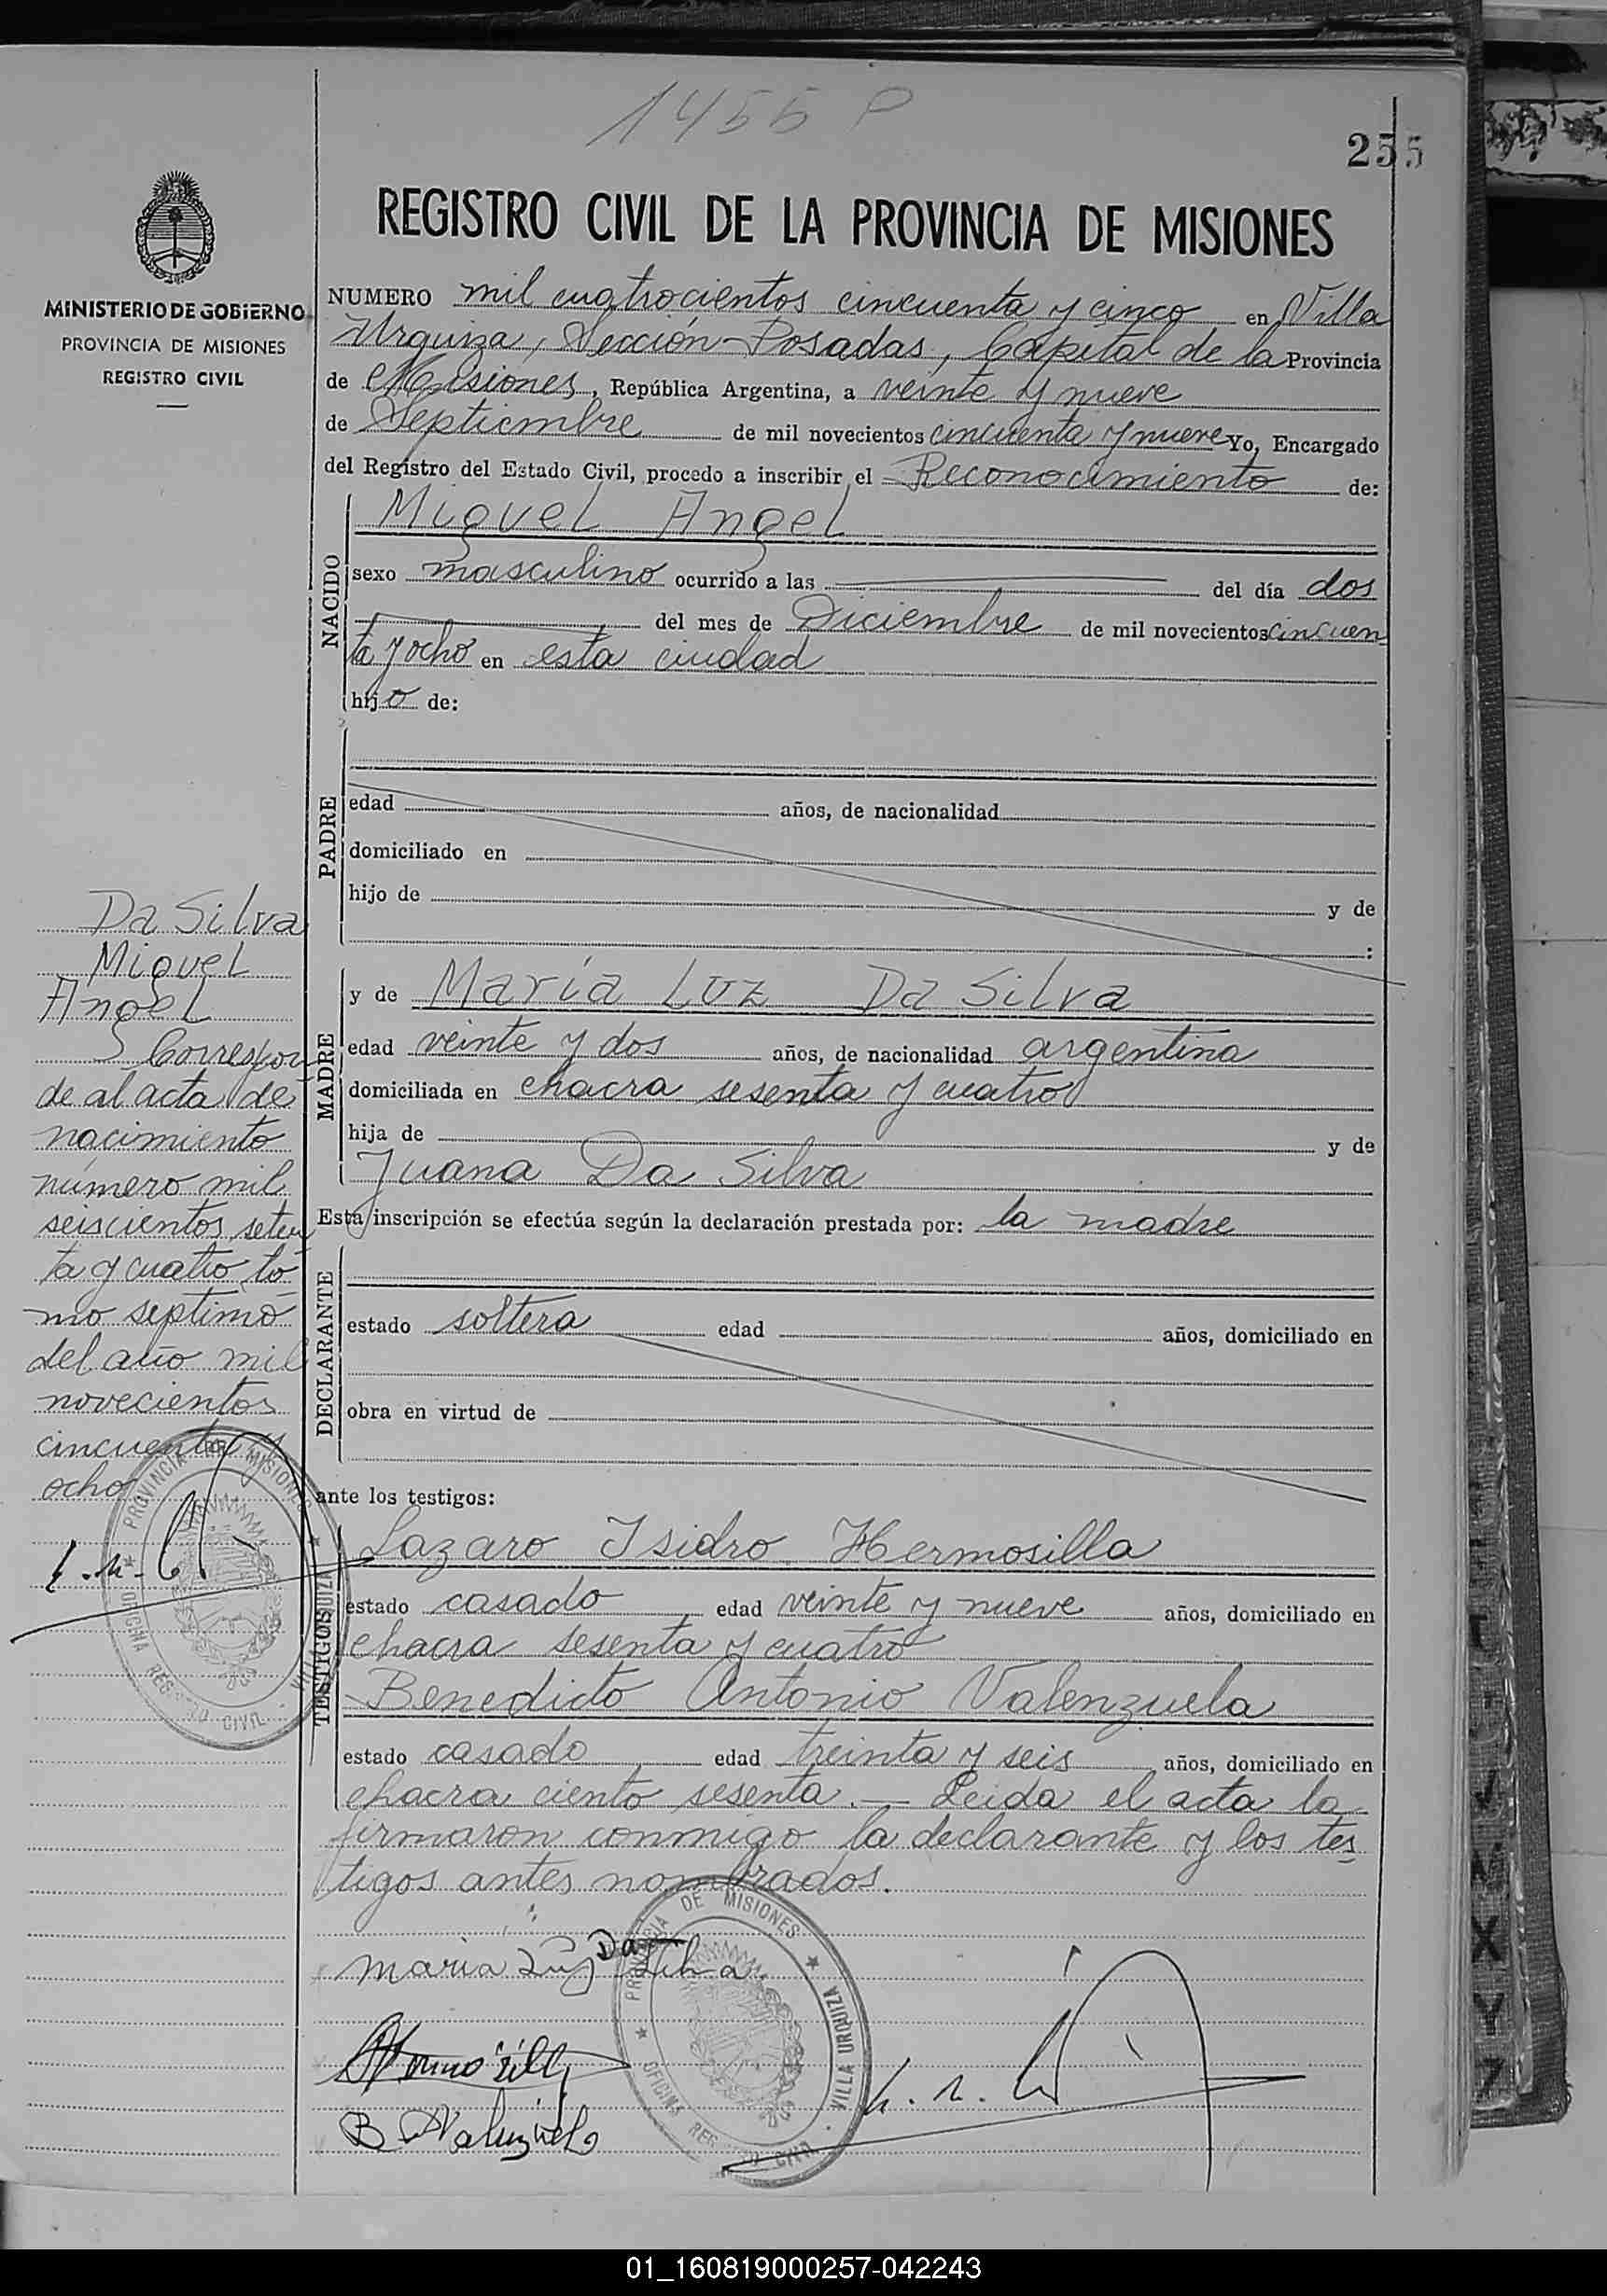 1455 P
255
MINISTERIO DE GOBIERNO
PROVINCIA DE MISIONES
REGISTRO CIVIL
REGISTRO CIVIL DE LA PROVINCIA DE MISIONES
NUMERO mil cuatrocientos cincuenta y cinco en Villa
Urquiza, Sección Posadas, Capital de la Provincia
de Misiones, República Argentina, a veinte y nueve
de Septiembre de mil novecientos cincuenta y nueve Yo, Encargado
del Registro del Estado Civil, procedo a inscribir el Reconocimiento de:
NACIDO
Miguel Angel
sexo masculino ocurrido a las del día dos
del mes de Diciembre de mil novecientos cincuen
ta y ocho en esta ciudad
hijo de:
PADRE
edad años, de nacionalidad
domiciliado en
hijo de y de
:
MADRE
y de María Luz Da Silva
edad veinte y dos años, de nacionalidad argentina
domiciliada en chacra sesenta y cuatro
hija de y de
Juana Da Silva
Esta inscripción se efectúa según la declaración prestada por: la madre
DECLARANTE
estado soltera edad años, domiciliado en
obra en virtud de
ante los testigos:
TESTIGOS
Lazaro Isidro Hermosilla
estado casado edad veinte y nueve años, domiciliado en
chacra sesenta y cuatro
Benedicto Antonio Valenzuela
estado casado edad treinta y seis años, domiciliado en
chacra ciento sesenta.— Leida el acta la
firmaron conmigo la declarante y los tes
tigos antes nombrados.
Da Silva
Miguel
Angel
Correspon
de al acta de
nacimiento
número mil
seiscientos seten
ta y cuatro to
mo septimo
del año mil
novecientos
cincuenta y
ocho
PROVINCIA DE MISIONES
OFICINA REGISTRO CIVIL
VILLA URQUIZA
maria Luz Da Silva
Hermosilla
B A Valenzuela
PROVINCIA DE MISIONES
OFICINA REGISTRO CIVIL
VILLA URQUIZA
01_160819000257-042243